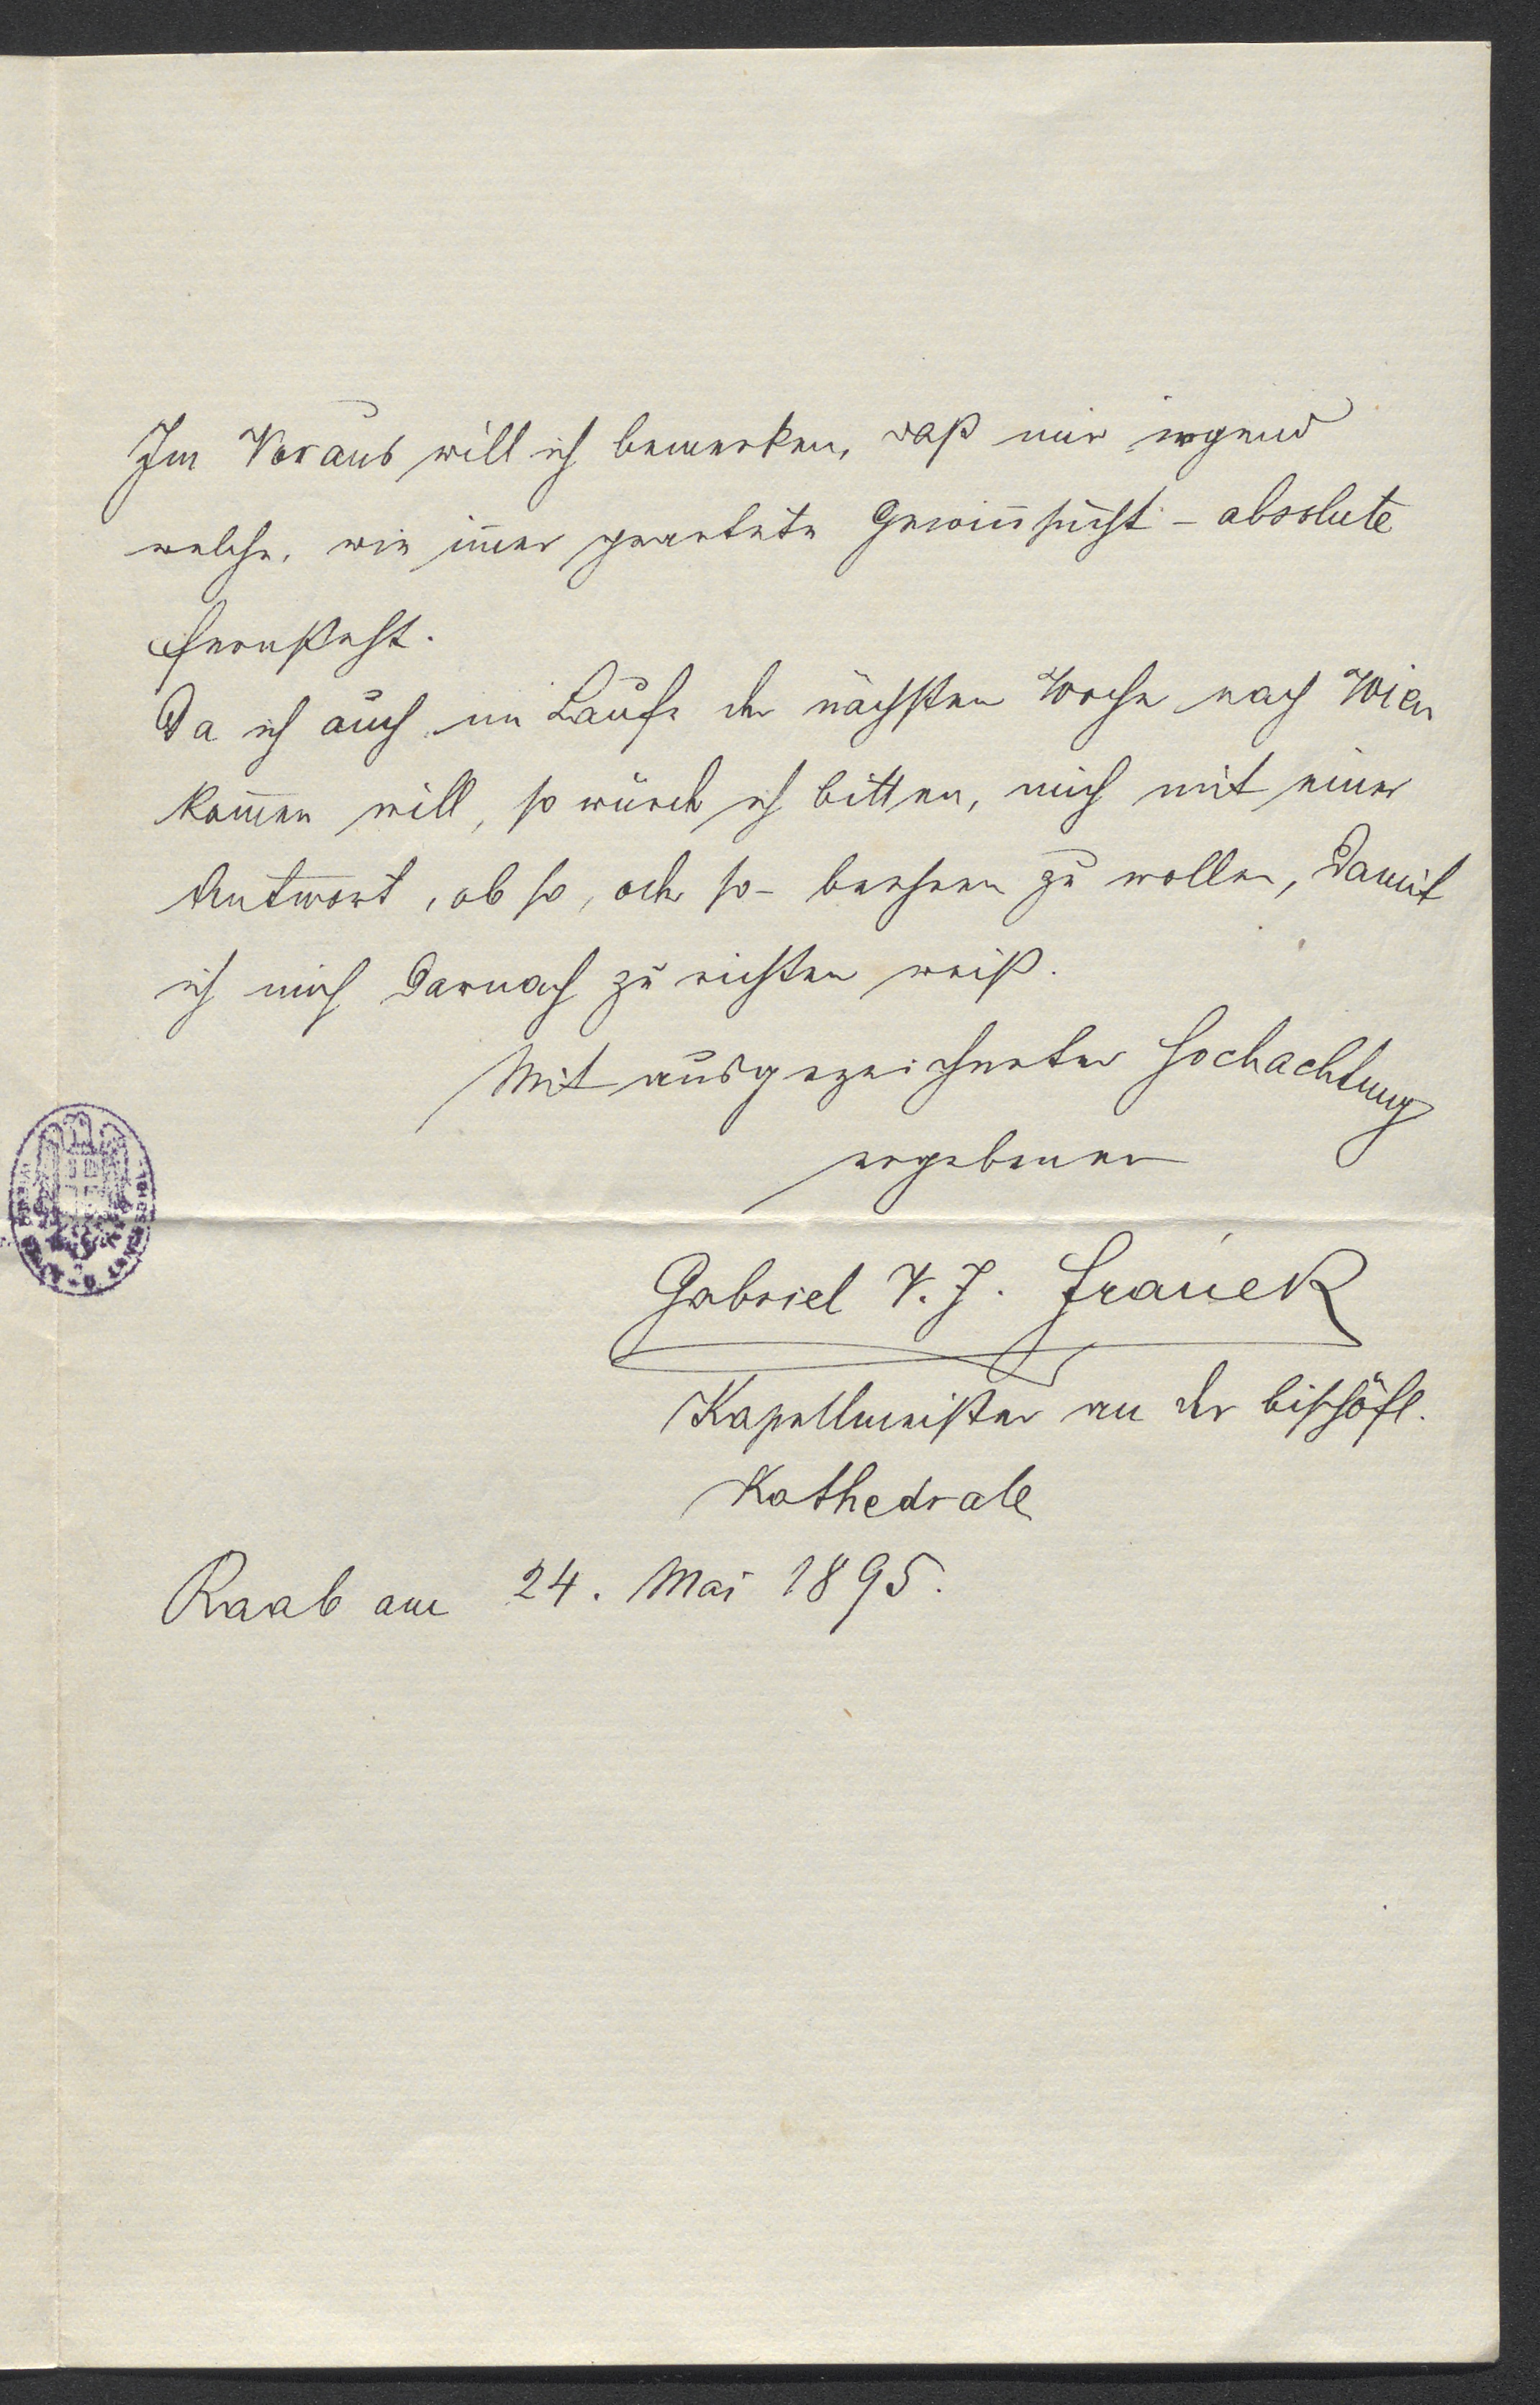 Im Voraus will ich bemerken, daß mir irgend
welche, wie im̄er geartete Gewin̄sucht – absolute
fernsteht.
Da ich auch im Laufe der nächsten Woche nach Wien
kom̄en will, so würde ich bitten, mich mit einer
Antwort, ob so, oder so – beehren zu wollen, damit
ich mich darnach zu richten weiß.
Mit ausgezeichneter Hochachtung
ergebener
Gabriel V. J.
Kapellmeister an der bischöfl.
Kathedrale
Raab am 24. Mai 1895.